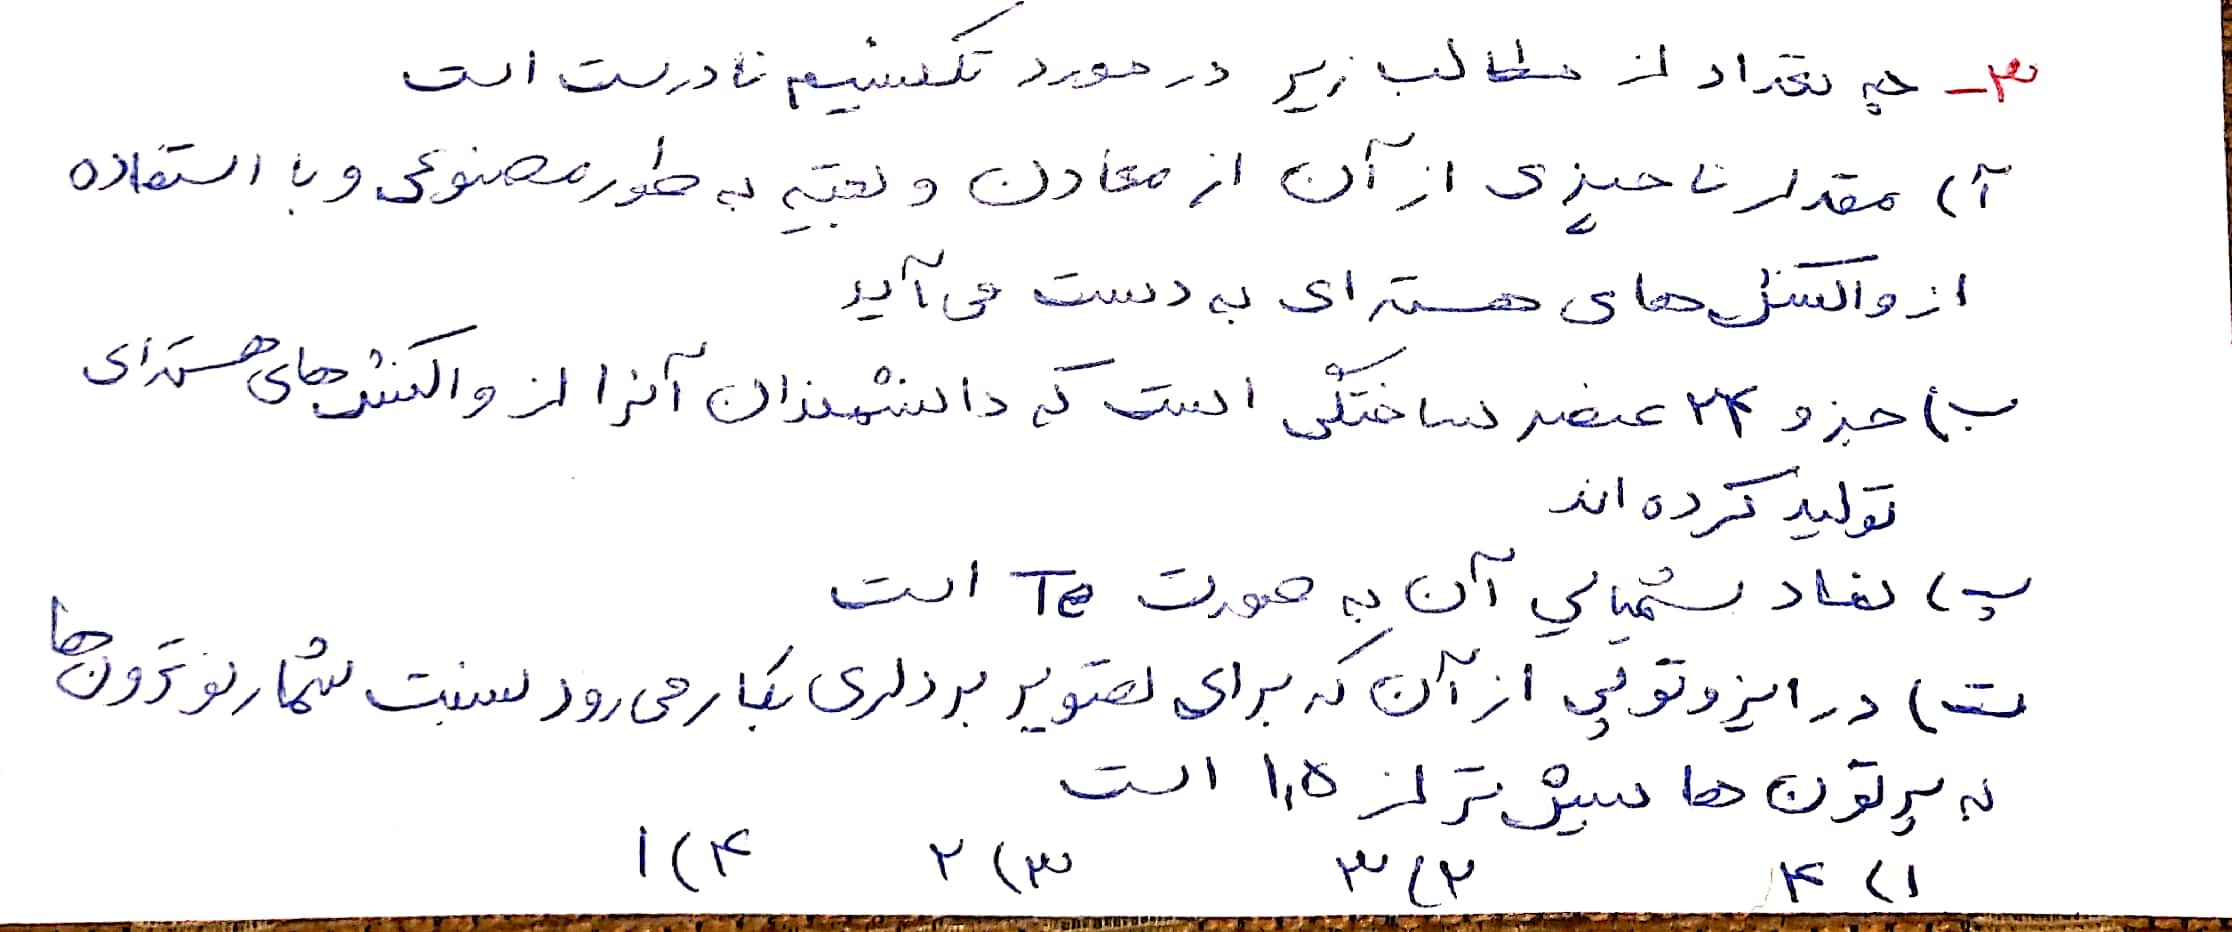 ۳- چه تعداد از مطالب زیر در مورد تکنسیم نادرست است
آ) مقدار ناچیزی از آن از معادن و بقیه به طور مصنوعی و با استفاده
از واکنش های هسته ای به دست می آید
ب) جزو ۲۴ عنصر ساختگی است که دانشمندان آنرا از واکنش های هسته ای
تولید کرده اند
پ) نماد شیمیایی آن به صورت Te است
ت) در ایزوتوپی از آن که برای تصویر برداری بکار می رود نسبت شمار نوترون ها
به پرتون ها بیش تر از ۱٫۵ است
۱) ۴ ۲) ۳ ۳) ۲ ۴) ۱